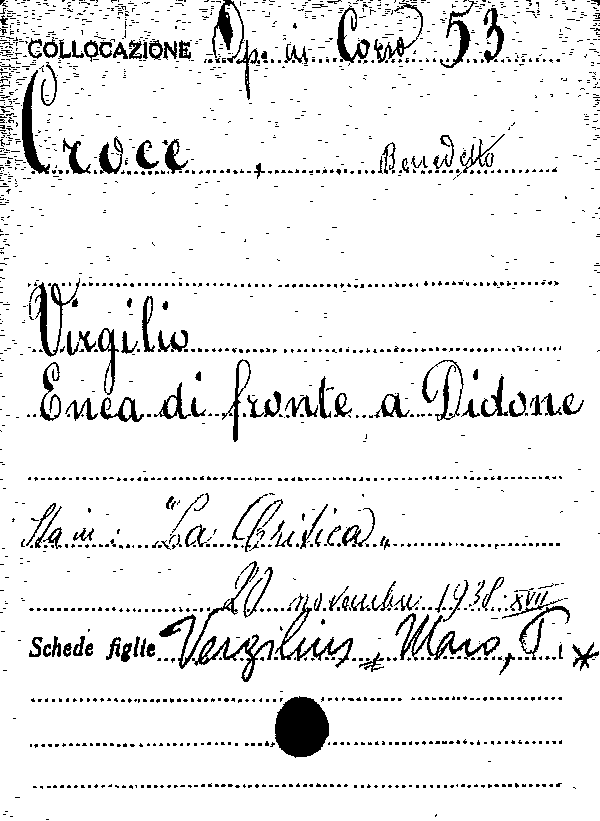 COLLOCAZIONE Op. in Corso 53
Croce, Benedetto
Virgilio
Enea di fronte a Didone
Sta in: "La Critica„
20 novembre 1938 XVII
Schede figlie Vergilius * Maro, P. *